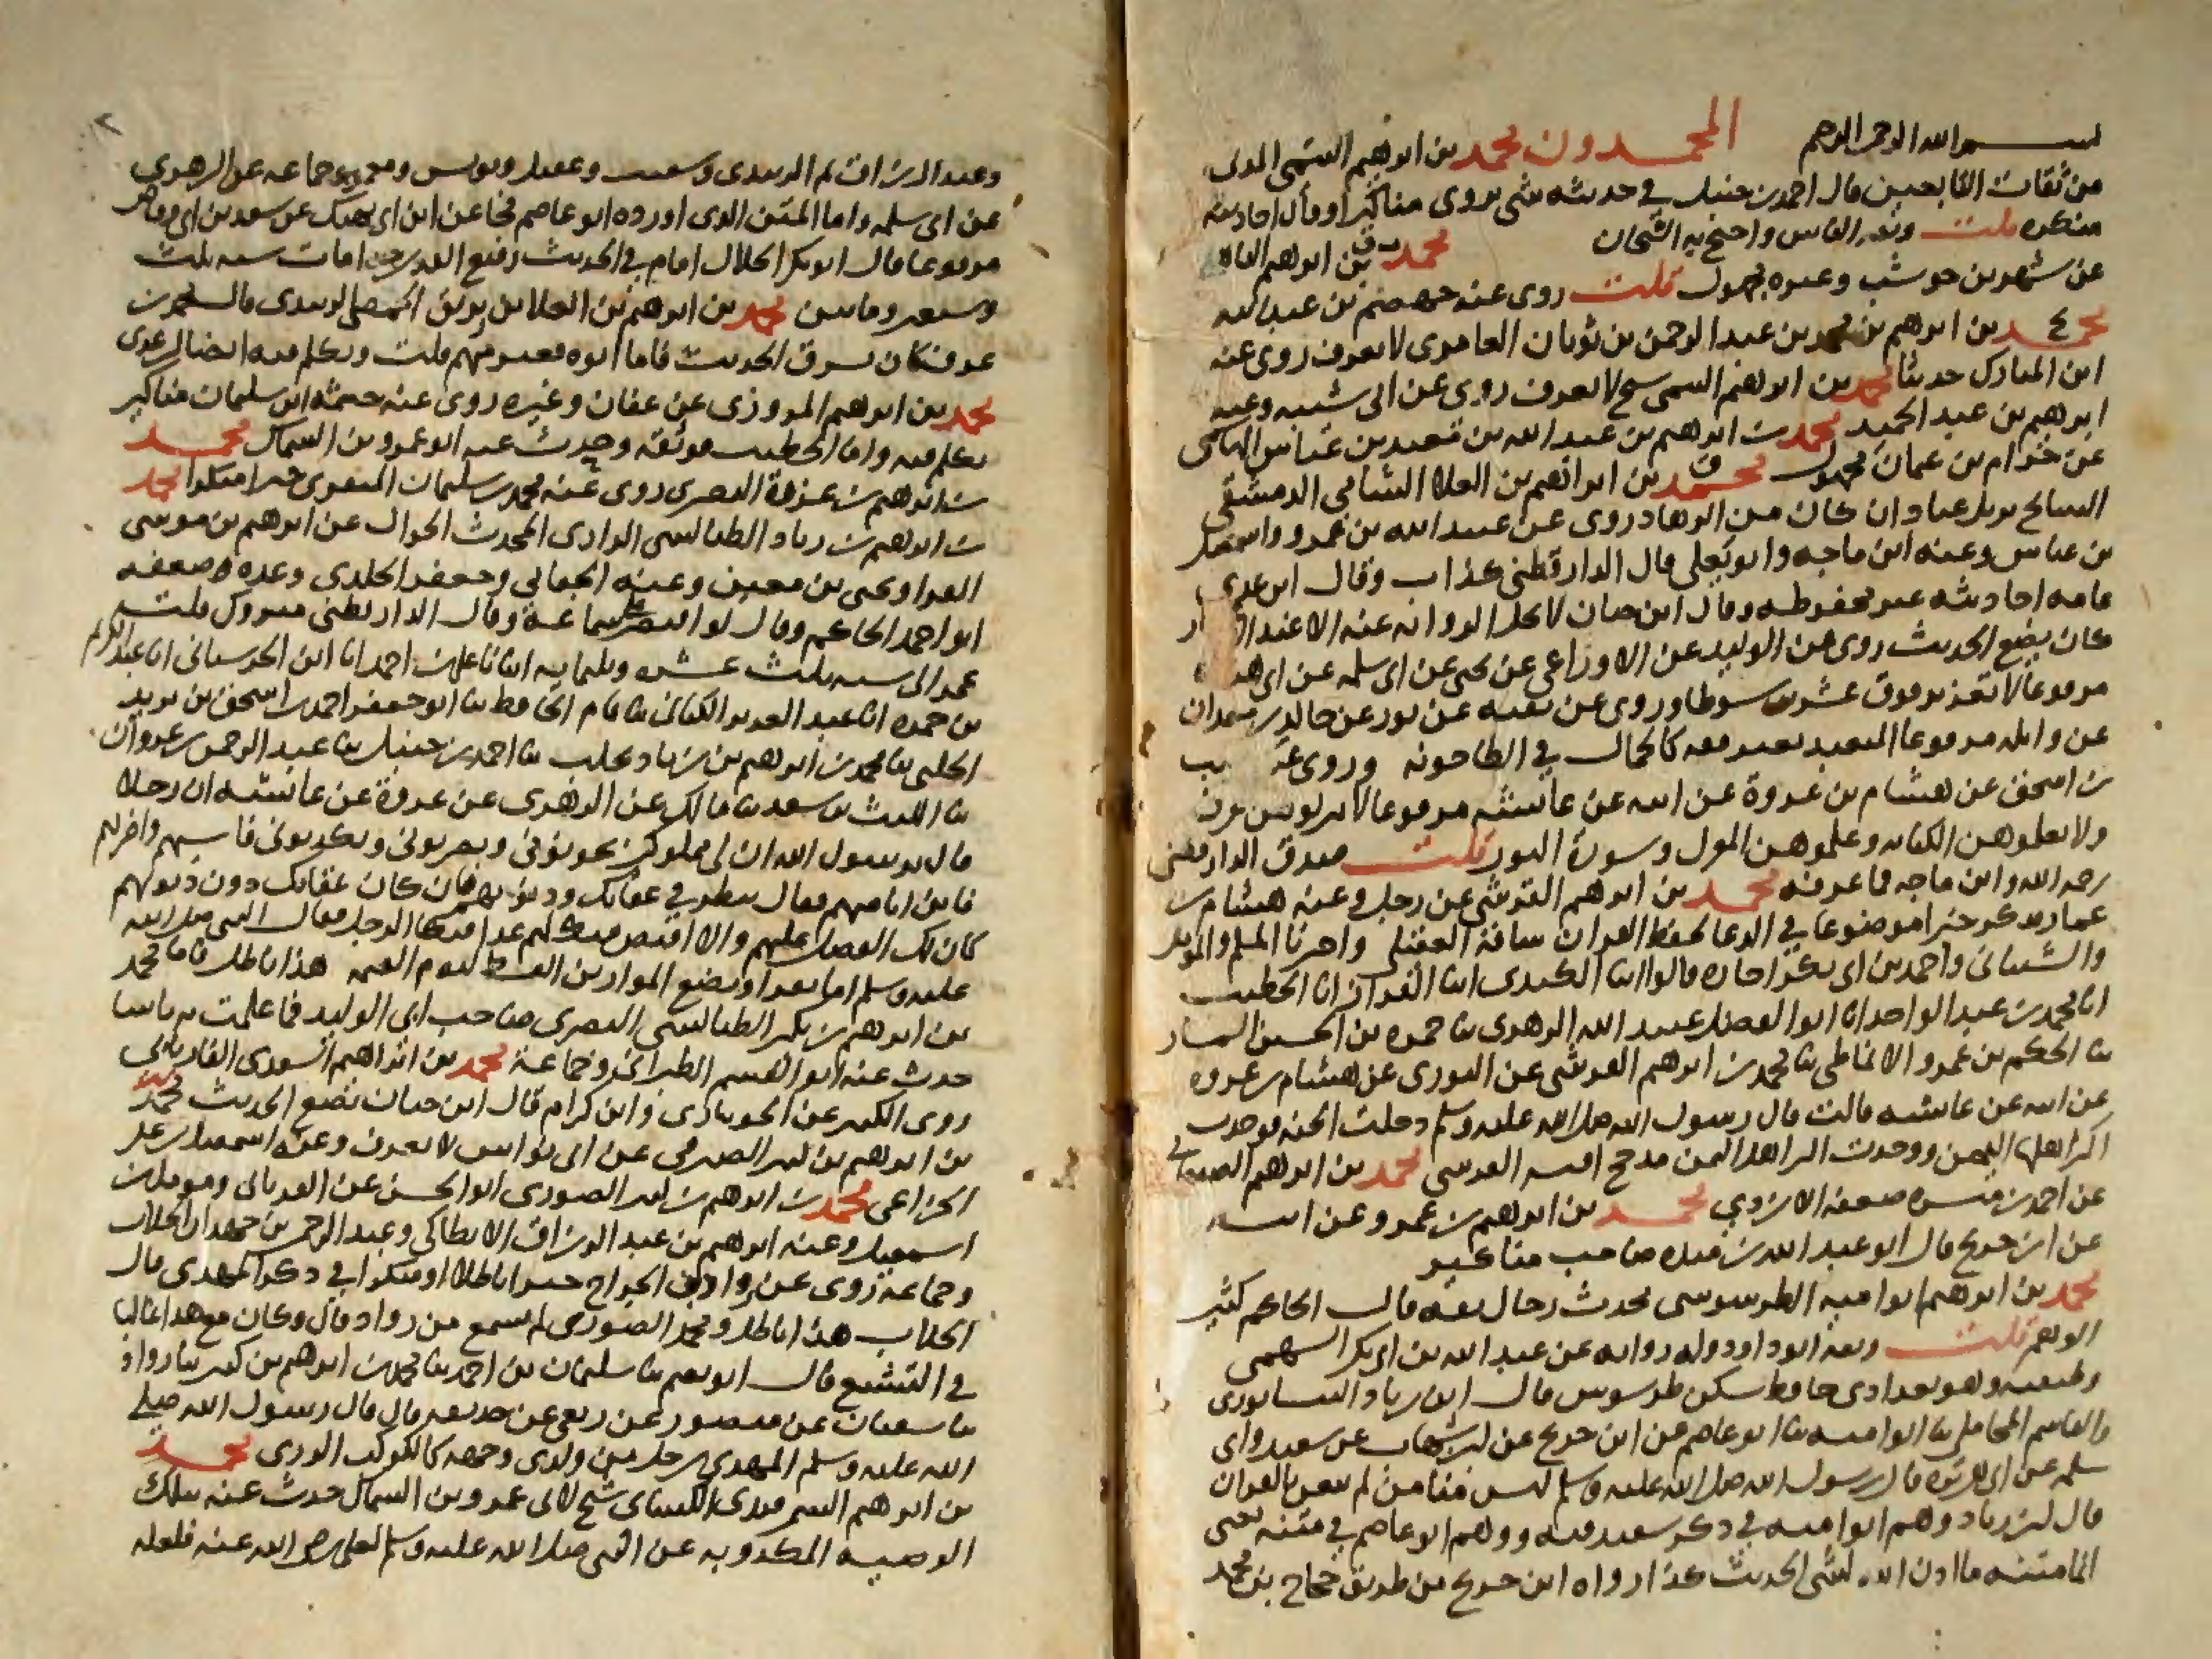 بسم الله الرحمن الرحيم المحمدون محمد بن ابرهيم التيمي المدني
من ثقات التابعين قال احمد بن حنبل في حديثه شي يروي مناكير او قال احاديث
منكره قلت وثقه الناس واحتج به الشيخان محمد بن ابرهيم الباهلي
عن شهر بن حوشب وعنه مجهول قلت روى عنه جهضم بن عبد الله
محمد بن ابرهيم بن محمد بن عبد الرحمن بن ثوبان العامري لا يعرف روى عنه
ابن المبارك حديثا محمد بن ابرهيم التيمي شيخ لا يعرف روى عن ابي شيبه وعنه
ابرهيم بن عبد الحميد محمد بن ابرهيم بن عبد الله بن معبد بن عباس الهاشمي
عن حرام بن عثمان مجهول محمد بن ابراهيم بن العلا الشامي الدمشقي
السايح نزيل عبادان كان من الزهاد روى عن عبيد الله بن عمرو واسمعيل
بن عياش وعنه ابن ماجه وابو يعلى قال الدارقطني كذاب وقال ابن عدي
عامه احاديثه غير محفوظه وقال ابن حبان لا تحل الروايه عنه الا عند الاعتبار
كان يضع الحديث روى عن الوليد عن الاوزاعي عن يحيى عن ابي سلمه عن ابي هريره
مرفوعا لا تعزير فوق عشرين سوطا وروى عن بقيه عن ثور عن خالد بن معدان
عن واثله مرفوعا المتعبد بغير فقه كالحمار في الطاحونه وروى عن شعيب
بن اسحق عن هشام بن عروة عن ابيه عن عايشه مرفوعا لا تنزلوهن الغرف
ولا تعلموهن الكتابه وعلموهن المغزل وسورة النور قلت صدق الدارقطني
رحمه الله وابن ماجه فما عرفه محمد بن ابرهيم القرشي عن رجل وعنه هشام بن
عمار فذكر خبرا موضوعا في الدعا لحفظ القران ساقه العقيلي واخبرنا المسلم والمؤمل
والشيباني واحمد بن ابي بكر اجازه قالوا ابنا الكندي ابنا القزاز انا الخطيب
انا محمد بن عبد الواحد انا ابو الفضل عبيد الله الزهري ثنا حمزه بن الحسين السمسار
ثنا الحكم بن عمرو الانماطي ثنا محمد بن ابرهيم القرشي عن الثوري عن هشام بن عروه
عن ابيه عن عايشه قالت قال رسول الله صلى الله عليه وسلم دخلت الجنه فوجدت
اكثر اهلها اليمن ووجدت اكثر اهل اليمن مذحج محمد بن ابرهيم
عن احمد بن ميسره ضعفه الازدي محمد بن ابرهيم بن عمرو عن ابيه
عن ابن جريج قال ابو عبد الله بن منده صاحب مناكير
محمد بن ابرهيم ابو اميه الطرسوسي محدث رحال ثقه قال الحاكم كثير
الوهم قلت وثقه ابو داود وله روايه عن عبد الله بن ابي بكر السهمي
وطبقته وهو بغدادي حافظ سكن طرسوس قال ابن زياد النيسابوري
والقاسم المحاملي ثنا ابو اميه ثنا ابو عاصم عن ابن جريج عن ابن شهاب عن سعيد وابي
سلمه عن ابي هريره قال رسول الله صلى الله عليه وسلم ليس منا من لم يتغن بالقران
قال ابن زياد وهم ابو اميه في ذكر سعيد فيه ووهم ابو عاصم في متنه يعني
انما متنه ما اذن الله لشي الحديث كذا رواه ابن جريج من طريق حجاج بن محمد
وعبد الرزاق ثم الزبيدي وشعيب وعقيل ويونس ومعمر وجماعه عن الزهري
عن ابي سلمه واما المتن الذي اورده ابو عاصم فجا عن ابن ابي نهيك عن سعد بن ابي وقاص
مرفوعا قال ابو بكر الخلال امام في الحديث رفيع القدر جدا مات سنه ثلث
وسبعين وماتين محمد بن ابرهيم بن العلا بن زبريق الحمصي الزبيدي قال محمد بن
عوف كان يسرق الحديث فاما ابوه فغير متهم قلت وتكلم فيه ايضا ابن عدي
محمد بن ابرهيم المروزي عن عفان وغيره روى عنه خيثمه بن سليمان مناكير
تكلم فيه واما الخطيب فوثقه وحدث عنه ابو عمرو بن السماك محمد
بن ابرهيم بن عزرة البصري روى عنه محمد بن سليمان المنقري خبرا منكرا محمد
بن ابرهيم بن زياد الطيالسي الرازي المحدث الجوال عن ابرهيم بن موسى
الفرا ويحيى بن معين وعنه الجعابي وجعفر الخلدي وعده ضعفه
ابو احمد الحاكم وقال لو اقتصر على سماعه وقال الدارقطني متروك قلت
عمر الى سنه ثلث عشره وثلثمايه انبانا علي بن احمد انا ابن الحرستاني انا عبد الكريم
بن حمزه انا عبد العزيز الكتاني ثنا تمام الحافظ ثنا ابو جعفر احمد بن اسحق بن يزيد
الحلبي ثنا محمد بن ابرهيم بن زياد بحلب ثنا احمد بن حنبل ثنا عبد الرحمن بن غزوان
ثنا الليث بن سعد ثنا مالك عن الزهري عن عروة عن عايشه ان رجلا
قال يرسول الله ان لي مملوكين يخونوني ويضربوني ويكذبوني فاسبهم واضربهم
فاين انا منهم فقال ينظر في عقابك وذنوبهم فان كان عقابك دون ذنوبهم
كان لك الفضل عليهم والا اقتص منك لهم غدا فبكا الرجل فقال النبي صلى الله
عليه وسلم اما تقرا ونضع الموازين القسط ليوم القيمه هذا باطل فاما محمد
بن ابرهيم بن بكر الطيالسي البصري صاحب ابي الوليد فما علمت به باسا
حدث عنه ابو القسم الطبراني وجماعة محمد بن ابراهيم السعدي الفاريابي
روى الكثير عن الجويباري وابن كرام قال ابن حبان يضع الحديث محمد
بن ابرهيم بن كثير الصيرفي عن ابي نواس لا يعرف وعنه اسمعيل بن علي
الخزاعي محمد بن ابرهيم بن كثير الصوري ابو الحسن عن الفريابي ومومل بن
اسمعيل وعنه ابرهيم بن عبد الرزاق الانطاكي وعبد الرحمن بن حمدان الجلاب
وجماعه روى عن رواد بن الجراح خبرا باطلا او منكرا في ذكر المهدي قال
الجلاب هذا باطل ومحمد الصوري لم يسمع من رواد قال وكان مع هذا غاليا
في التشيع قال ابو نعيم ثنا سليمان بن احمد ثنا محمد بن ابرهيم بن كثير ثنا رواد
ثنا سفيان عن منصور عن ربعي عن حذيفه قال قال رسول الله صلى
الله عليه وسلم المهدي رجل من ولدي وجهه كالكوكب الدري محمد
بن ابرهيم السمرقندي الكسائي شيخ لابي عمرو بن السماك حدث عنه بتلك
الوصيه المكذوبه عن النبي صلى الله عليه وسلم لعلي رضي الله عنه فلعله